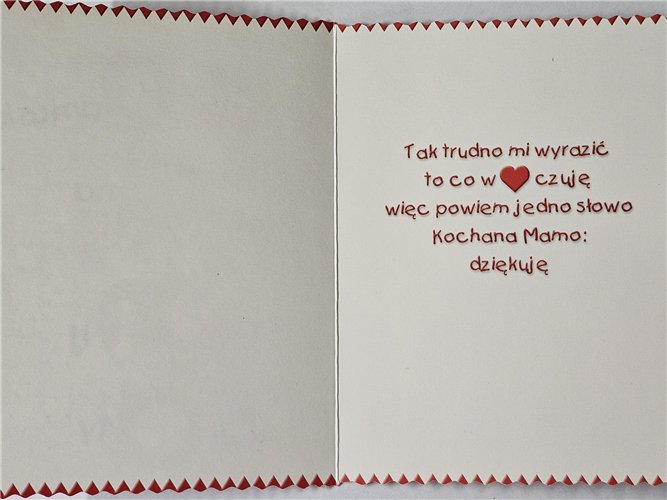 Tak trudno mi wyrazić
to co w ❤ czuję
więc powiem jedno słowo
Kochana Mamo:
dziękuję